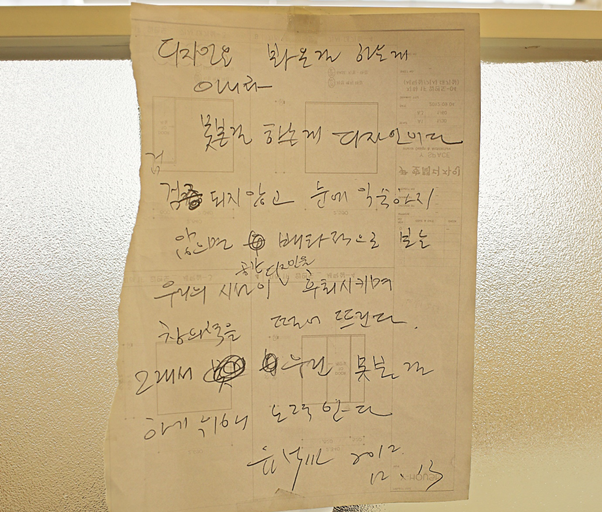 디자인은 봐온걸 하는게
아니라
못본걸 하는게 디자인이다
검
검증되지 않고 눈에 익숙하지
않으면 배타적으로 보는
우리의 시선이 공간디자인을 후퇴시키며
창의성을 떨어 뜨린다.
그래서 우린 못본걸
하기 위해 노력한다
2012
12. 13